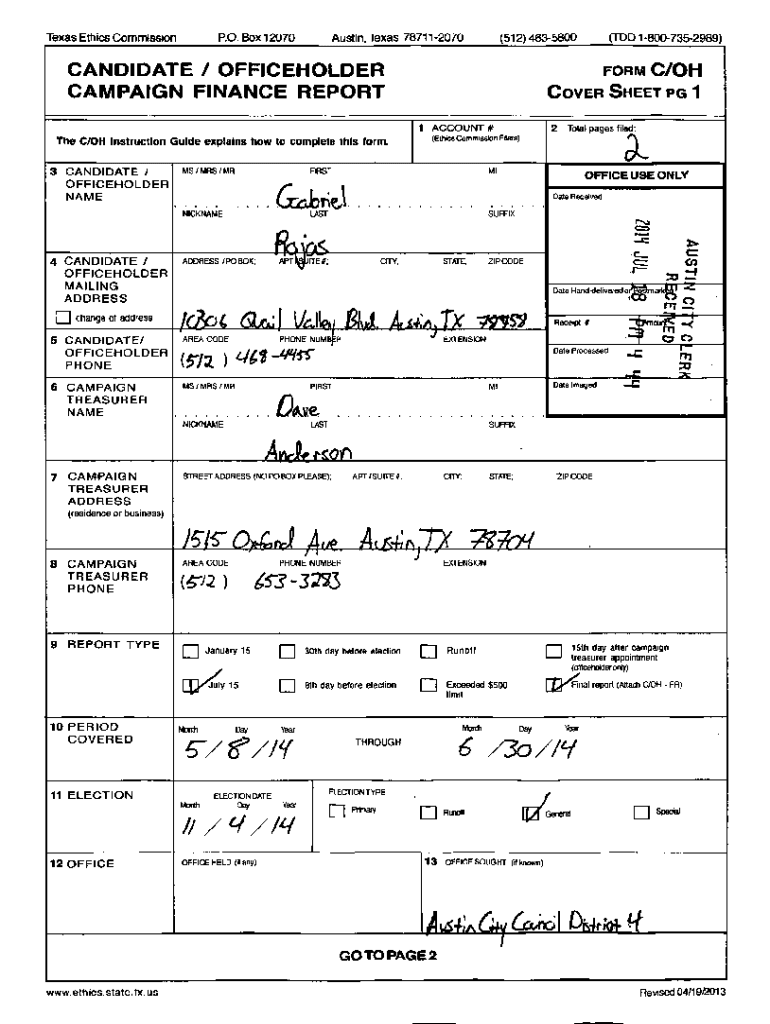 Texas Ethics Commission P.O. Box 12070 Austin, Texas 78711-2070 (512) 463-5800 (TDD 1-800-735-2989)
CANDIDATE / OFFICEHOLDER FORM C/OH
CAMPAIGN FINANCE REPORT COVER SHEET PG 1
The C/OH Instruction Guide explains how to complete this form.
1 ACCOUNT # (Ethics Commission Filers)
2 Total pages filed:
2
3 CANDIDATE / OFFICEHOLDER NAME
MS / MRS / MR FIRST MI
Gabriel
NICKNAME LAST SUFFIX
Rojas
OFFICE USE ONLY
Date Received
AUSTIN CITY CLERK
RECEIVED
2014 JUL 18 PM 4 44
Date Hand-delivered or Postmarked
Receipt # Amount
Date Processed
Date Imaged
4 CANDIDATE / OFFICEHOLDER MAILING ADDRESS
change of address
ADDRESS / PO BOX; APT / SUITE #; CITY; STATE; ZIP CODE
10306 Quail Valley Blvd. Austin, TX 78758
5 CANDIDATE/ OFFICEHOLDER PHONE
AREA CODE PHONE NUMBER EXTENSION
(512) 468-4455
6 CAMPAIGN TREASURER NAME
MS / MRS / MR FIRST MI
Dave
NICKNAME LAST SUFFIX
Anderson
7 CAMPAIGN TREASURER ADDRESS
(residence or business)
STREET ADDRESS (NO PO BOX PLEASE); APT / SUITE #; CITY; STATE; ZIP CODE
1515 Oxford Ave. Austin, TX 78704
8 CAMPAIGN TREASURER PHONE
AREA CODE PHONE NUMBER EXTENSION
(512) 653-3283
9 REPORT TYPE
January 15 30th day before election Runoff 15th day after campaign treasurer appointment (officeholder only)
July 15 8th day before election Exceeded $500 limit Final report (Attach C/OH - FR)
10 PERIOD COVERED
Month Day Year Month Day Year
5/8/14 THROUGH 6/30/14
11 ELECTION
ELECTION DATE ELECTION TYPE
Month Day Year Primary Runoff General Special
11/4/14
12 OFFICE
OFFICE HELD (if any)
13 OFFICE SOUGHT (if known)
Austin City Council District 4
GO TO PAGE 2
www.ethics.state.tx.us Revised 04/19/2013